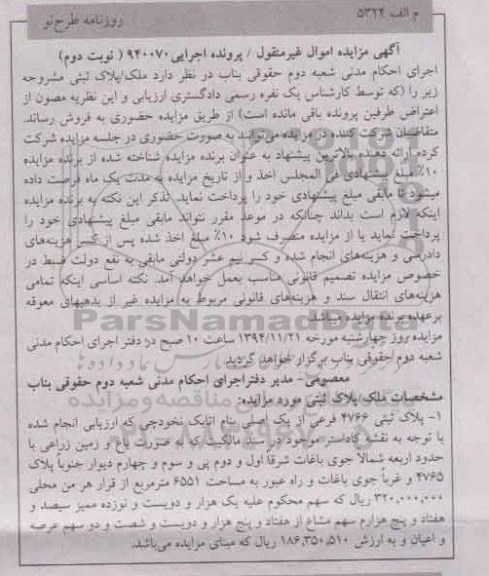 م الف ۵۳۲۴
روزنامه طرح‌نو
آگهی مزایده اموال غیرمنقول / پرونده اجرایی ۹۴۰۰۷۰ ( نوبت دوم)
اجرای احکام مدنی شعبه دوم حقوقی بناب در نظر دارد ملک/پلاک ثبتی مشروحه
زیر را (که توسط کارشناس یک نفره رسمی دادگستری ارزیابی و این نظریه مصون از
اعتراض طرفین پرونده باقی مانده است) از طریق مزایده حضوری به فروش رساند.
متقاضیان شرکت کننده در مزایده می‌توانند به صورت حضوری در جلسه مزایده شرکت
کرده ارائه دهنده بالاترین پیشنهاد به عنوان برنده مزایده شناخته شده از برنده مزایده
۱۰٪ مبلغ پیشنهادی فی المجلس اخذ و از تاریخ مزایده به مدت یک ماه فرصت داده
میشود تا مابقی مبلغ پیشنهادی خود را پرداخت نماید. تذکر این نکته به برنده مزایده
اینکه لازم است بداند چنانکه در موعد مقرر نتواند مابقی مبلغ پیشنهادی خود را
پرداخت نماید یا از مزایده منصرف شود ۱۰٪ مبلغ اخذ شده پس از کسر هزینه‌های
دادرسی و هزینه‌های انجام شده و کسر نیم عشر دولتی مابقی به نفع دولت ضبط در
خصوص مزایده تصمیم قانونی مناسب بعمل خواهد آمد. نکته اساسی اینکه تمامی
هزینه‌های انتقال سند و هزینه‌های قانونی مربوط به مزایده غیر از بدهیهای معوقه
برعهده برنده مزایده میباشد.
مزایده روز چهارشنبه مورخه ۱۳۹۴/۱۱/۲۱ ساعت ۱۰ صبح در دفتر اجرای احکام مدنی
شعبه دوم حقوقی بناب برگزار خواهد گردید.
معصومی- مدیر دفتر اجرای احکام مدنی شعبه دوم حقوقی بناب
مشخصات ملک/پلاک ثبتی مورد مزایده:
۱- پلاک ثبتی ۴۷۶۶ فرعی از یک اصلی بنام اتابک نخودچی که ارزیابی انجام شده
با توجه به نقشه کاداستر موجود در سند مالکیت به صورت باغ و زمین زراعی با
حدود اربعه شمالاً جوی باغات شرقاً اول و دوم پی و سوم و چهارم دیوار جنوباً پلاک
۴۷۶۵ و غرباً جوی باغات و راه عبور به مساحت ۶۵۵۱ مترمربع از قرار هر من محلی
۳۲۰,۰۰۰,۰۰۰ ریال که سهم محکوم علیه یک هزار و دویست و نوزده ممیز سیصد و
هفتاد و پنج هزارم سهم مشاع از هفتاد و پنج هزار و دویست و شصت و دو سهم عرصه
و اعیان و به ارزش ۱۸۶,۳۵۰,۵۱۰ ریال که مبنای مزایده می‌باشد.
ParsNamadData